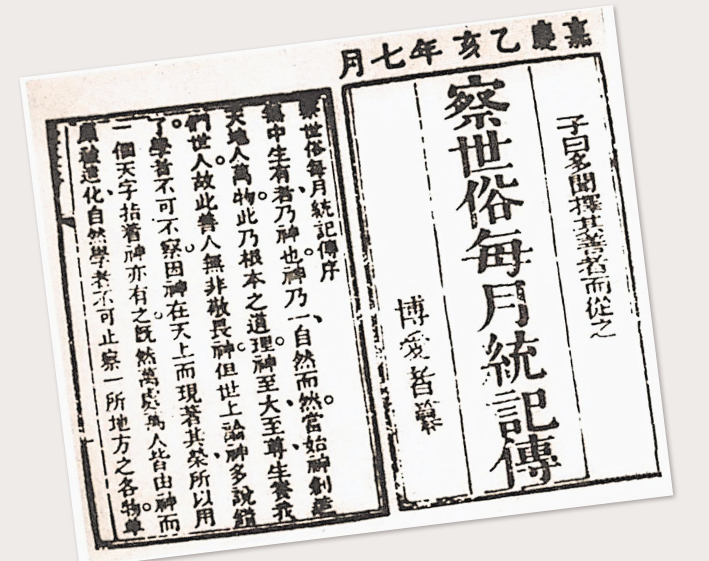 嘉慶乙亥年七月
子曰多聞擇其善者而從之
察世俗每月統記傳
博愛者纂
察世俗每月統記傳序
無中生有者、乃神也。神乃一、自然而然。當始神創造
天地人萬物。此乃根本之道理。神至大、至尊、生養我
們世人。故此善人無非敬畏神。但世上論神、多說錯
了。學者不可不察。因神在天上而現著其榮所以用
一個天字指着神亦有之。既然萬處萬人皆由神而
原被造化、自然學者不可止察一所地方之各物。單